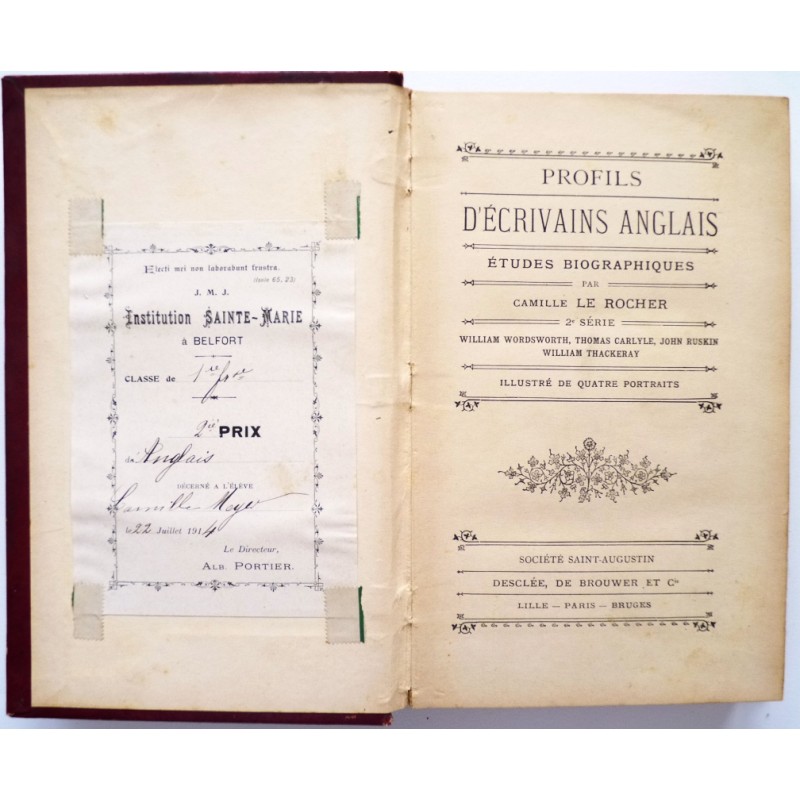 Electi mei non laborabunt frustra.
(Isaïe 65, 23)
J. M. J.
Institution SAINTE-MARIE
à BELFORT
CLASSE de 1re
2e PRIX
d'Anglais
DÉCERNÉ A L'ÉLÈVE
Camille Meyer
le 22 Juillet 1914
Le Directeur,
ALB. PORTIER.
PROFILS
D'ÉCRIVAINS ANGLAIS
ÉTUDES BIOGRAPHIQUES
PAR
CAMILLE LE ROCHER
2e SÉRIE
WILLIAM WORDSWORTH, THOMAS CARLYLE, JOHN RUSKIN
WILLIAM THACKERAY
ILLUSTRÉ DE QUATRE PORTRAITS
SOCIÉTÉ SAINT-AUGUSTIN
DESCLÉE, DE BROUWER ET Cie
LILLE — PARIS — BRUGES